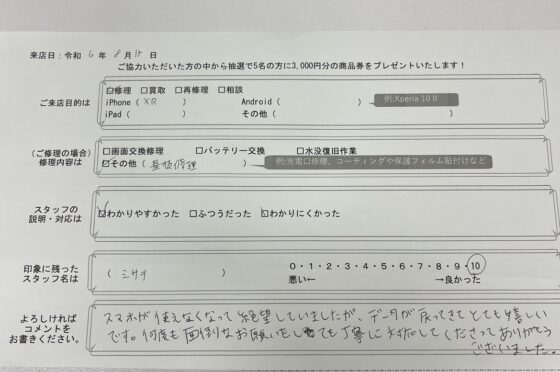 来店日：令和 6 年 8 月 17 日
ご協力いただいた方の中から抽選で5名の方に3,000円分の商品券をプレゼントいたします！
ご来店目的は
☑修理 □買取 □再修理 □相談
iPhone（ XR ） Android（ ） 例:Xperia 10 II
iPad（ ） その他（ ）
（ご修理の場合）
修理内容は
□画面交換修理 □バッテリー交換 □水没復旧作業
☑その他（ 基板修理 ） 例:充電口修理、コーティングや保護フィルム貼付けなど
スタッフの
説明・対応は
☑わかりやすかった □ふつうだった □わかりにくかった
印象に残った
スタッフ名は
（ ミサオ ）
0・1・2・3・4・5・6・7・8・9・10
悪い← →良かった
よろしければ
コメントを
お書きください。
スマホが使えなくなって絶望していましたが、データが戻ってきてとても嬉しい
です。何度も面倒なお願いをしても丁寧に対応してくださってありがとう
ございました。